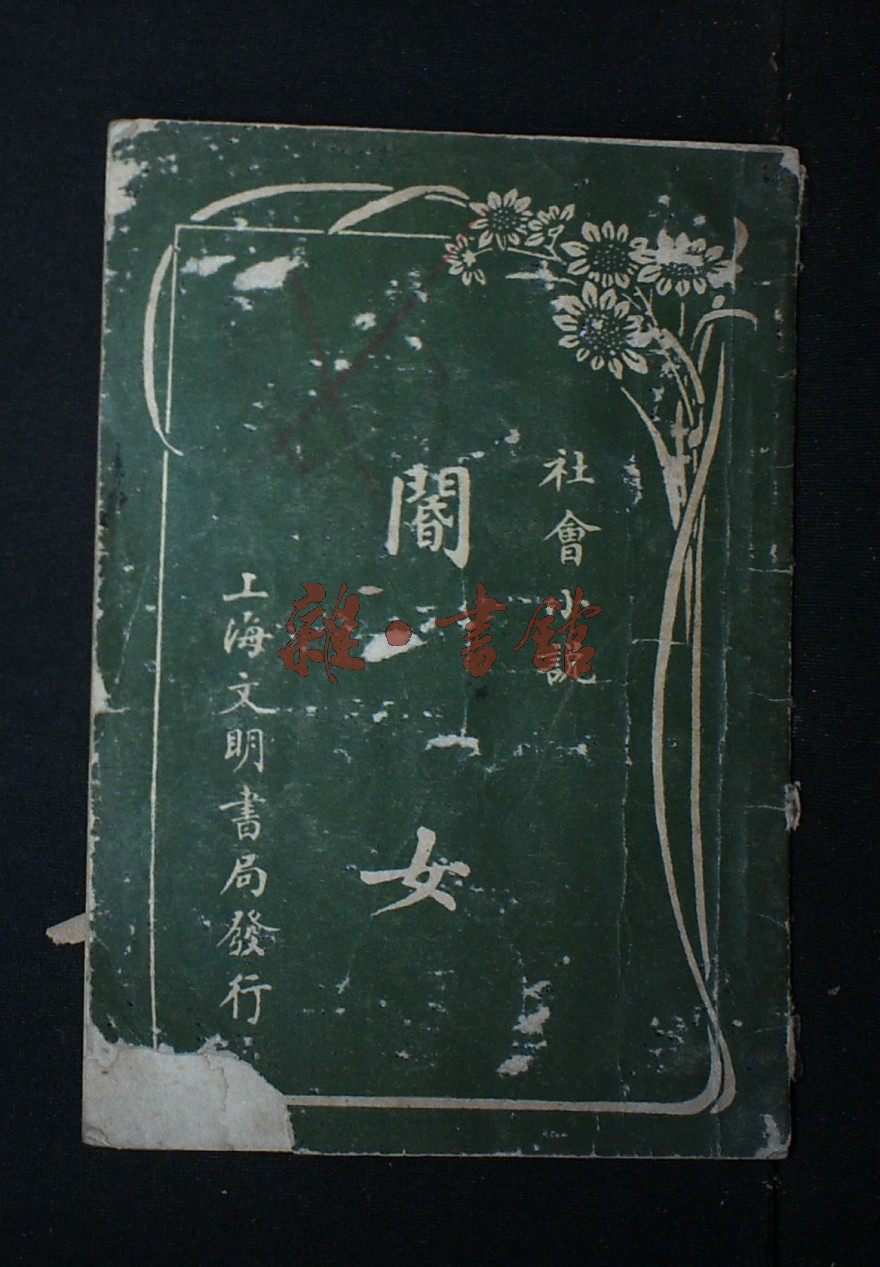 社會小說
閽
女
上海文明書局發行
雜·書館